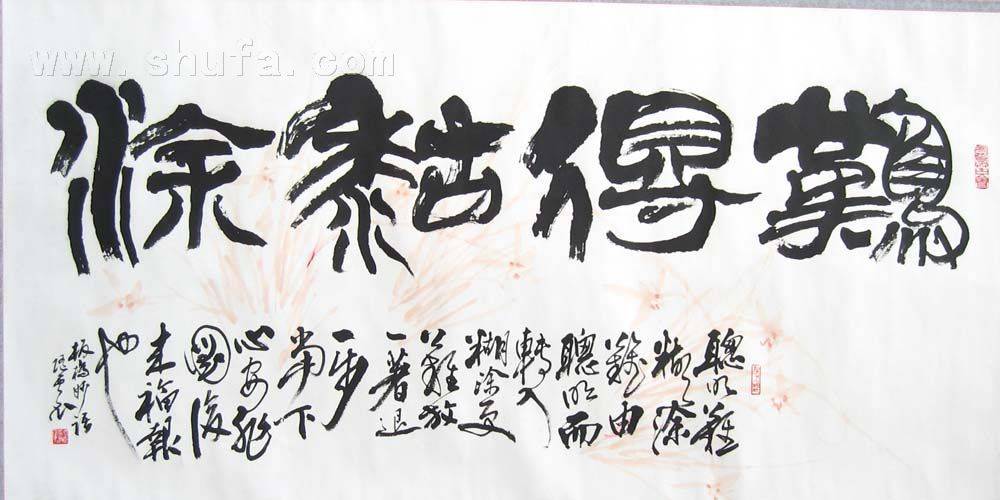 www.shufa.com
難得糊涂
聰明難
糊涂
難由
聰明而
轉入
糊涂更
難放
一著退
一步
當下
心安非
圖後
來福報
也
板橋妙語